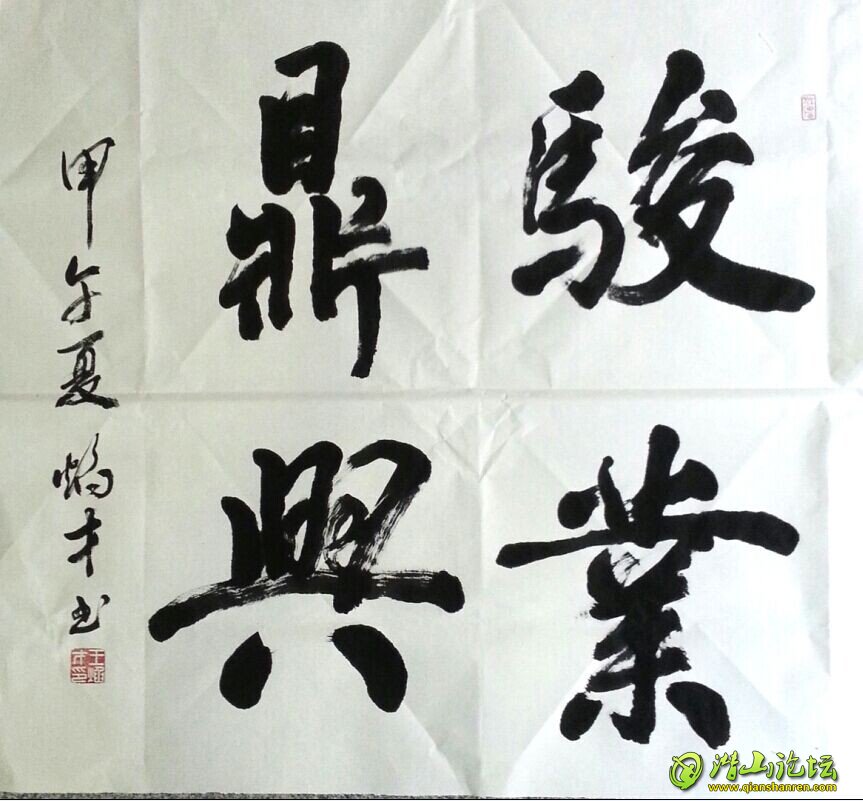 駿業
鼎興
甲午夏 焔才书
潜山论坛
www.qianshanren.com